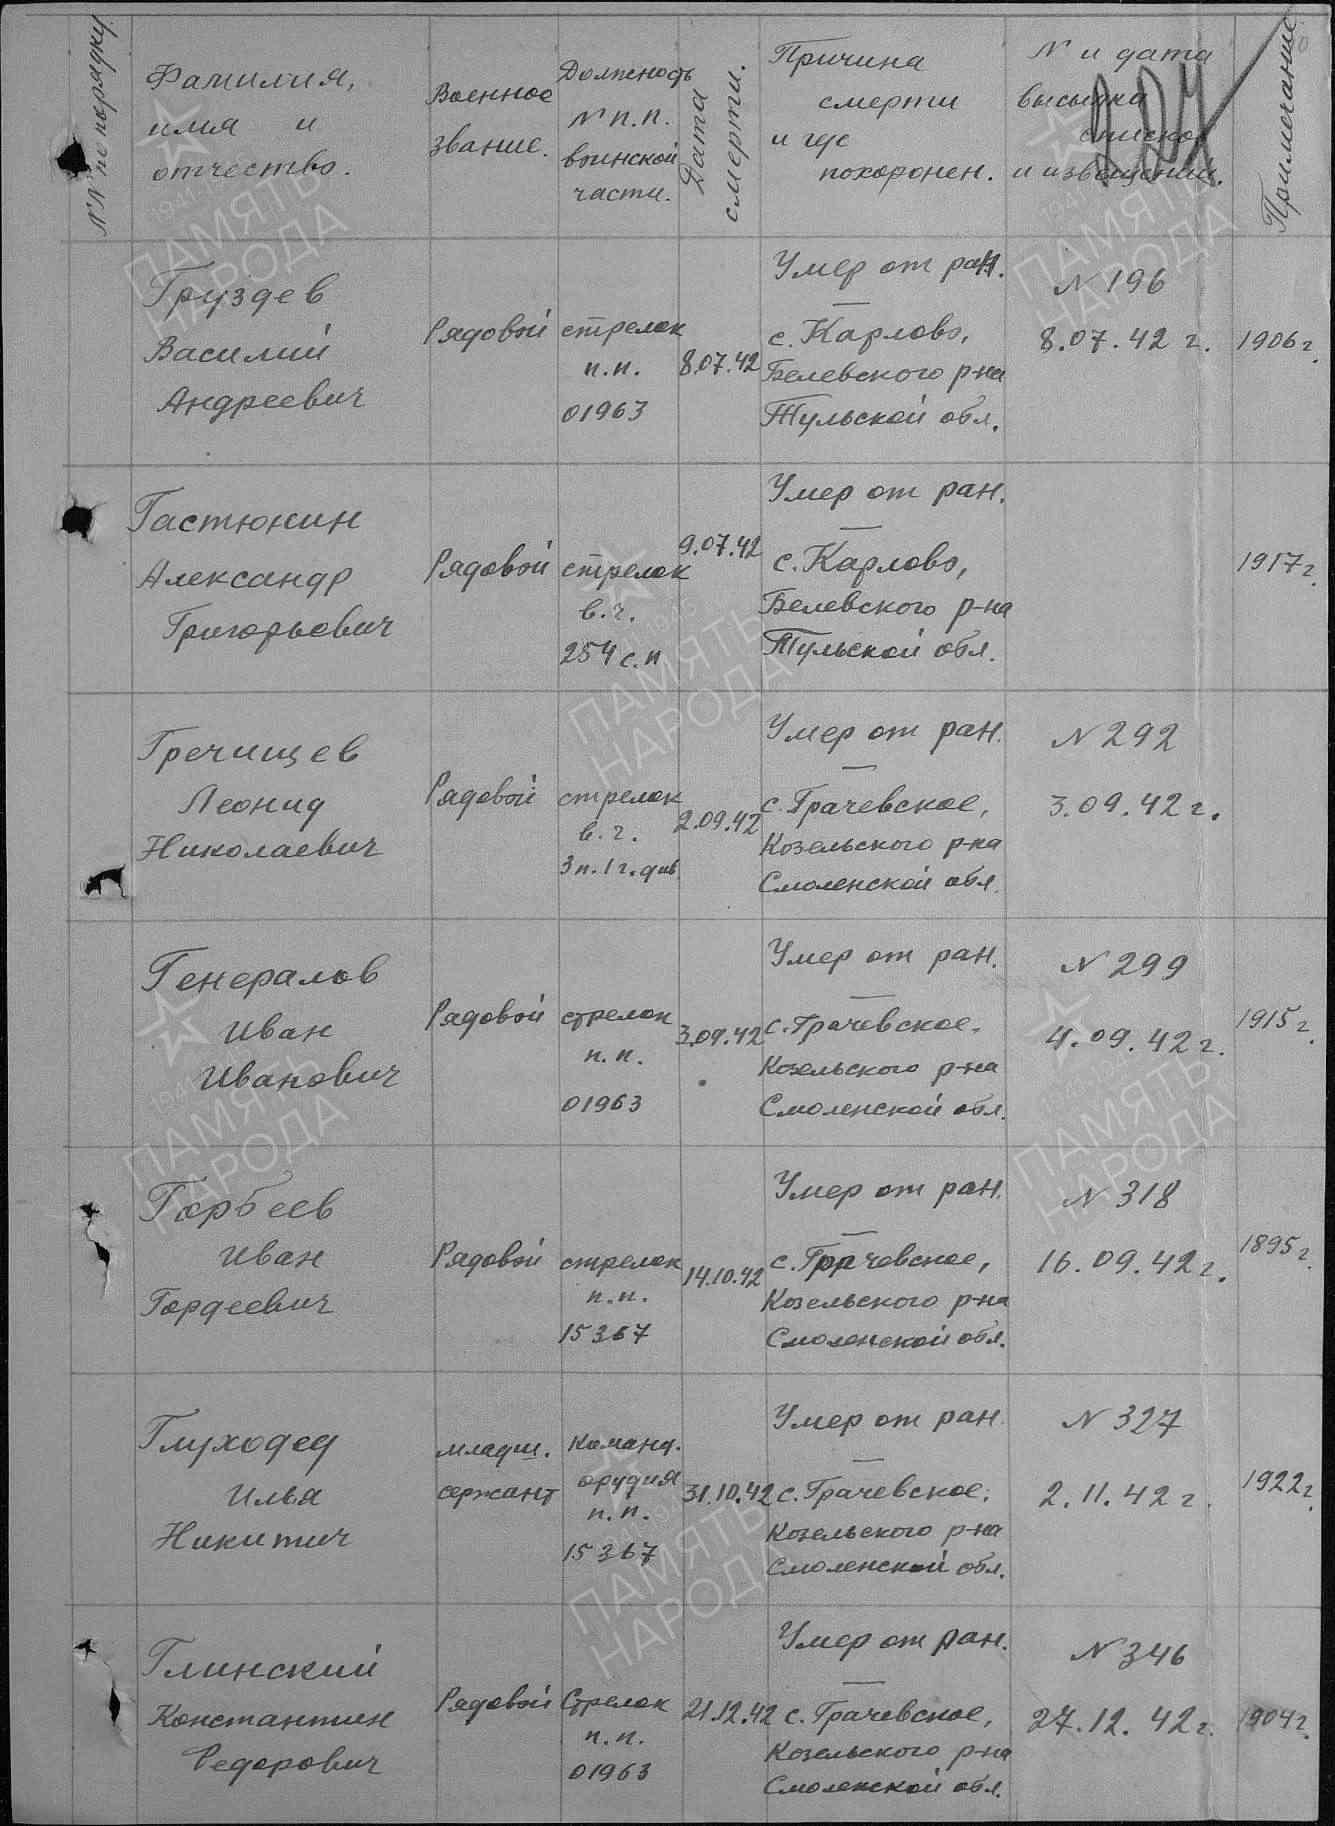 №№ по порядку
Фамилия,
имя и
отчество.
Военное
звание.
Должность
№ п.п.
воинской
части.
Дата
смерти.
Причина
смерти
и где
похоронен.
N и дата
высылки
списков
и извещений.
Примечание
Груздев
Василий
Андреевич
Рядовой
стрелок
п.п.
01963
8.07.42
Умер от ран.
с. Карлово,
Белевского р-на
Тульской обл.
N 196
8.07.42 г.
1906 г.
Гастюнин
Александр
Григорьевич
Рядовой
стрелок
в.ч.
254 с.п
9.07.42
Умер от ран.
с. Карлово,
Белевского р-на
Тульской обл.
1917 г.
Гречищев
Леонид
Николаевич
Рядовой
стрелок
в.ч.
3 п. 1 г. див.
2.09.42
Умер от ран.
с. Грачевское,
Козельского р-на
Смоленской обл.
N 292
3.09.42 г.
Генералов
Иван
Иванович
Рядовой
стрелок
п.п.
01963
3.09.42
Умер от ран.
с. Грачевское.
Козельского р-на
Смоленской обл.
N 299
4.09.42 г.
1915 г.
Горбеев
Иван
Гордеевич
Рядовой
стрелок
п.п.
15367
14.10.42
Умер от ран.
с. Грачевское,
Козельского р-на
Смоленской обл.
N 318
16.09.42 г.
1895 г.
Глуходед
Илья
Никитич
младш.
сержант
команд.
орудия
п.п.
15367
31.10.42
Умер от ран
с. Грачевское.
Козельского р-на
Смоленской обл.
N 327
2.11.42 г.
1922 г.
Глинский
Константин
Федорович
Рядовой
Стрелок
п.п.
01963
21.12.42
Умер от ран.
с. Грачевское,
Козельского р-на
Смоленской обл.
N 346
27.12.42 г.
1904 г.
ПАМЯТЬ
НАРОДА
ПАМЯТЬ
НАРОДА
ПАМЯТЬ
НАРОДА
ПАМЯТЬ
НАРОДА
ПАМЯТЬ
НАРОДА
ПАМЯТЬ
НАРОДА